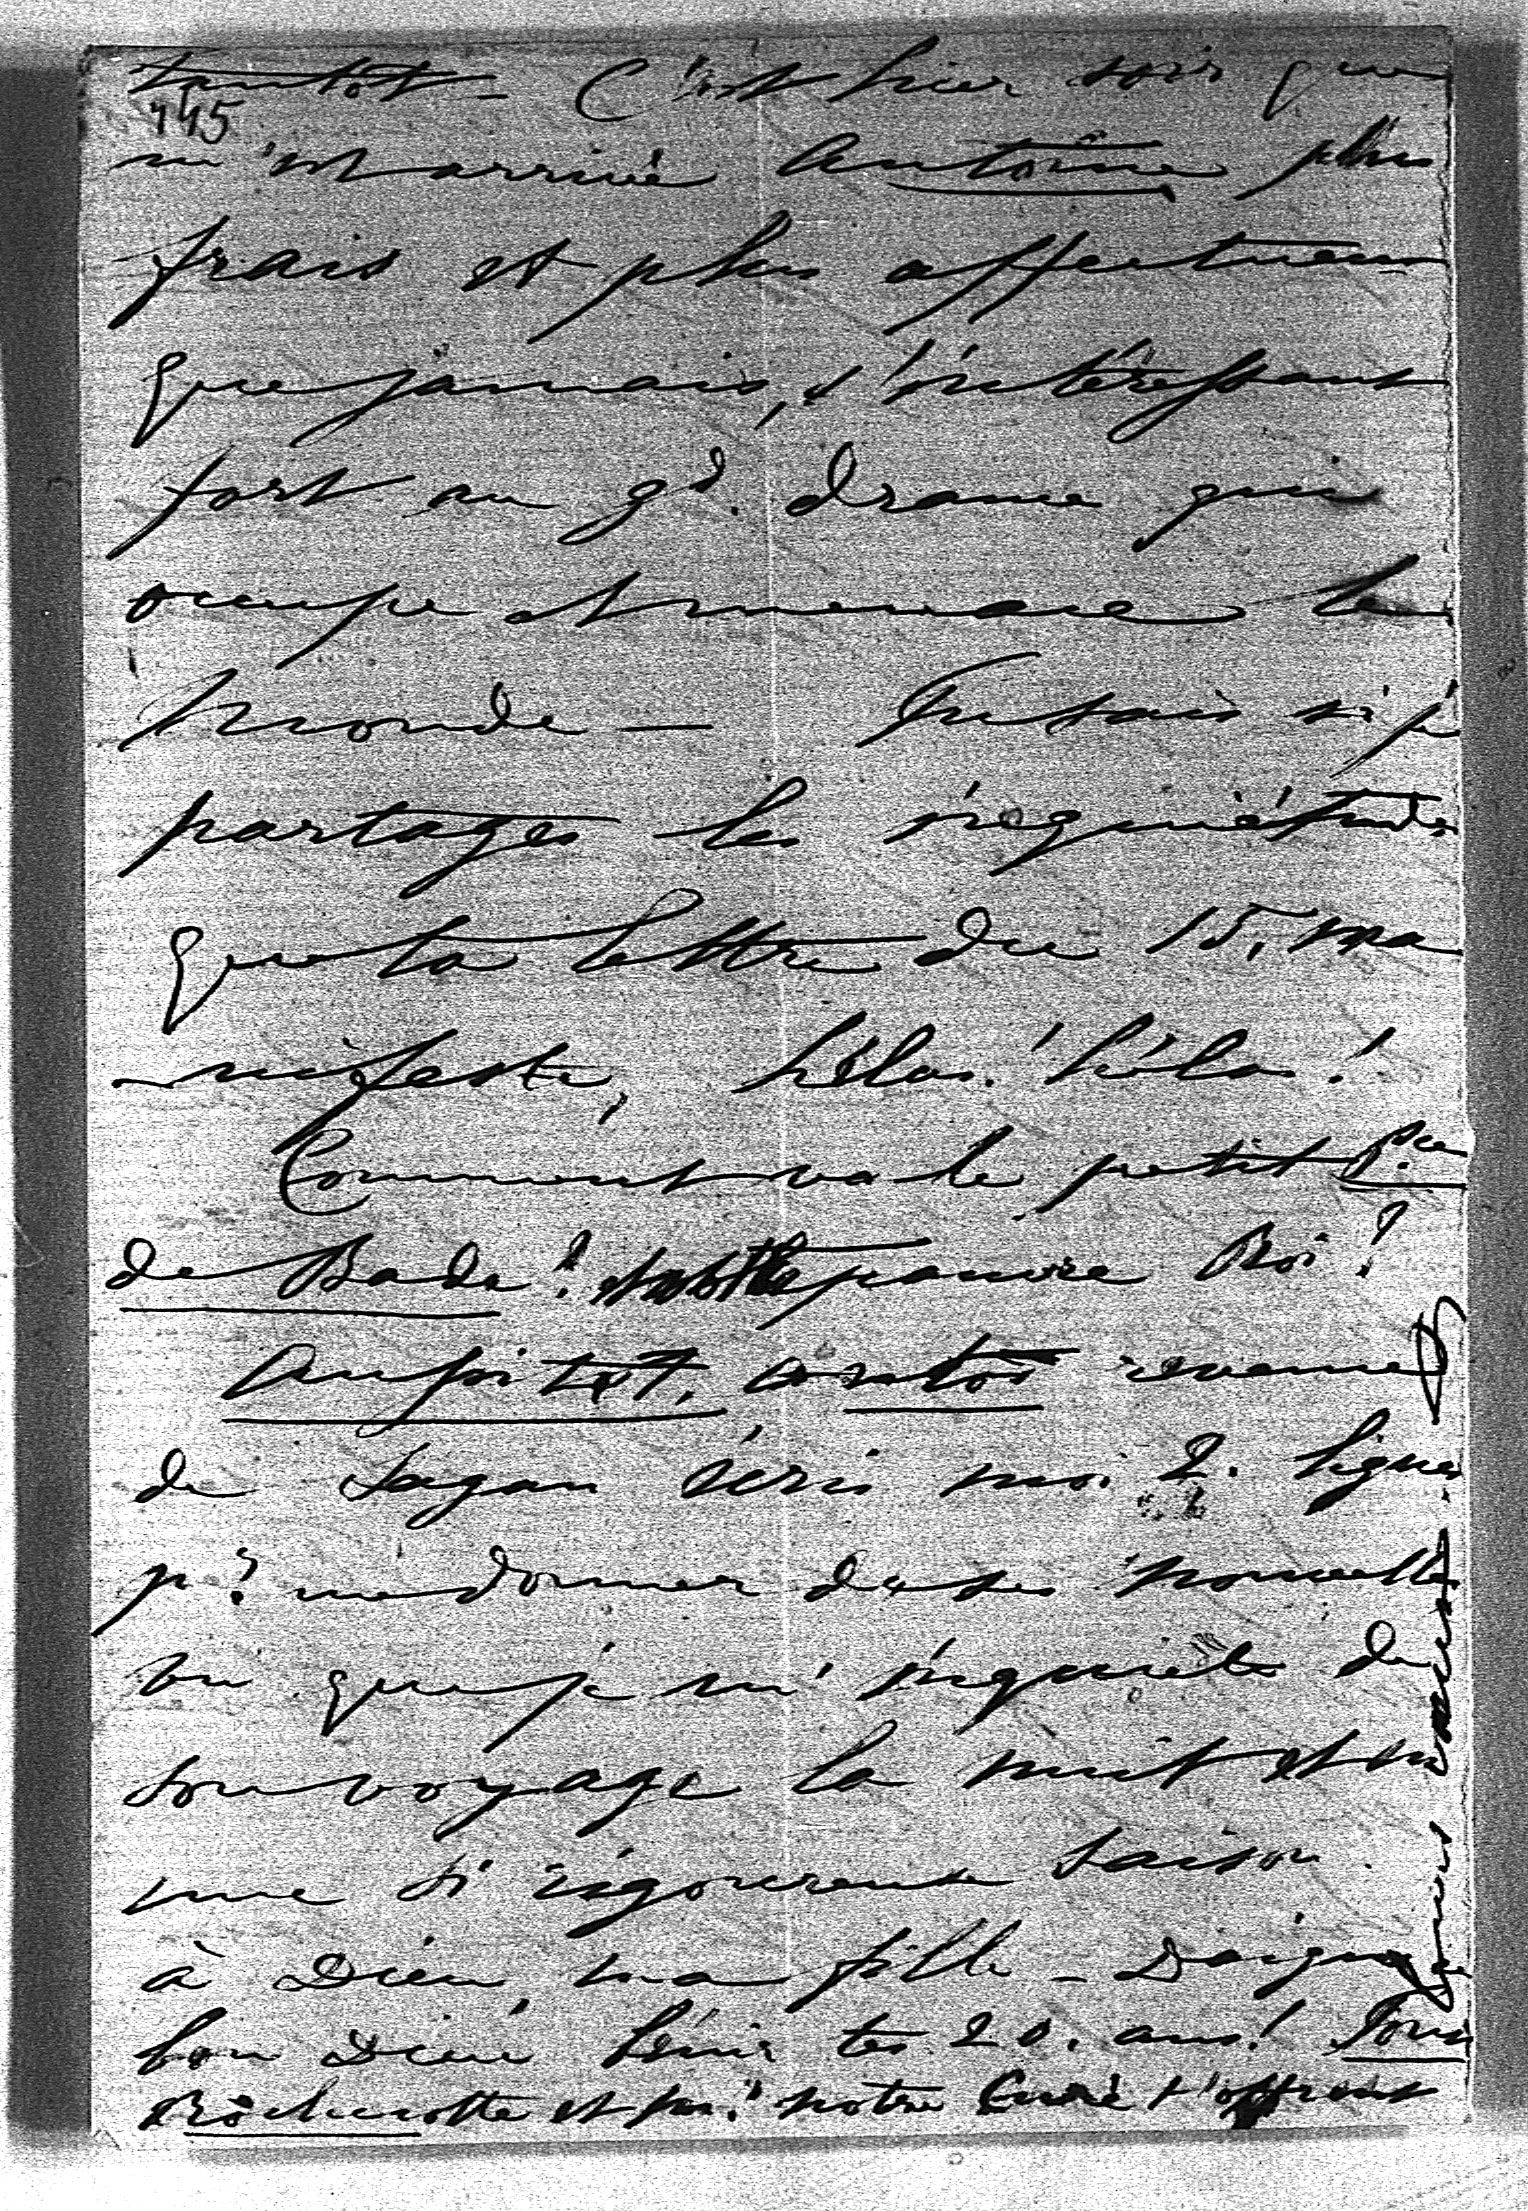 tantôt – C'est hier soir que
445
m'est arrivé Antoine plus
frais et plus affectueux
que jamais, s'intéressant
fort au gd. drame qui
occupe et menace le
monde — Tu sais si je
partages les inquiétudes
que ta lettre du 15, ma
nifeste, hélas! hélas!
Comment va le petit Pce
de Bade? et notre pauvre Roi?
Aussitôt, revenue
de Sagan écris moi 2. lignes
pr. me donner de tes nouvelles
vu que je m'inquiète de
ton voyage la nuit et en
une si rigoureuse saison.
à Dieu, ma fille – Daigne le
bon Dieu bénir tes 20. ans! Tout
Rochecotte et Mr. notre Curé t'offrent